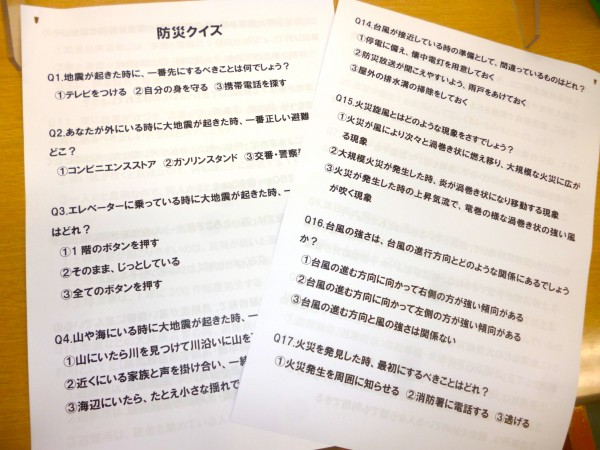 防災クイズ
Q1.地震が起きた時に、一番先にするべきことは何でしょう?
①テレビをつける ②自分の身を守る ③携帯電話を探す
Q2.あなたが外にいる時に大地震が起きた時、一番正しい避難
どこ?
①コンビニエンスストア ②ガソリンスタンド ③交番・警察
Q3.エレベーターに乗っている時に大地震が起きた時、一
はどれ?
①1 階のボタンを押す
②そのまま、じっとしている
③全てのボタンを押す
Q4.山や海にいる時に大地震が起きた時、一
①山にいたら川を見つけて川沿いに山を
②近くにいる家族と声を掛け合い、一緒
③海辺にいたら、たとえ小さな揺れで
Q14.台風が接近している時の準備として、間違っているものはどれ?
①停電に備え、懐中電灯を用意しておく
②防災放送が聞こえやすいよう、雨戸をあけておく
③屋外の排水溝の掃除をしておく
Q15.火災旋風とはどのような現象をさすでしょう?
①火災が風により次々と渦巻き状に燃え移り、大規模な火災に広が
る現象
②大規模火災が発生した時、炎が渦巻き状になり移動する現象
③火災が発生した時の上昇気流で、竜巻の様な渦巻き状の強い風
が吹く現象
Q16.台風の強さは、台風の進行方向とどのような関係にあるでしょう
か?
①台風の進む方向に向かって右側の方が強い傾向がある
②台風の進む方向に向かって左側の方が強い傾向がある
③台風の進む方向と風の強さは関係ない
Q17.火災を発見した時、最初にするべきことはどれ?
①火災発生を周囲に知らせる ②消防署に電話する ③逃げる